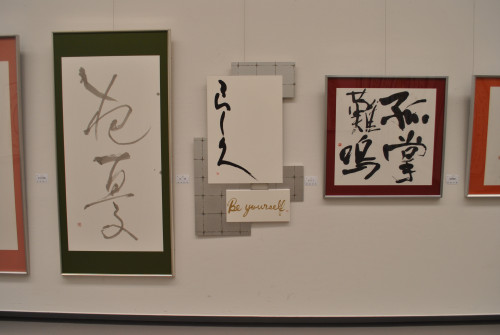 抱
らしく
Be yourself.
孤掌
難鳴